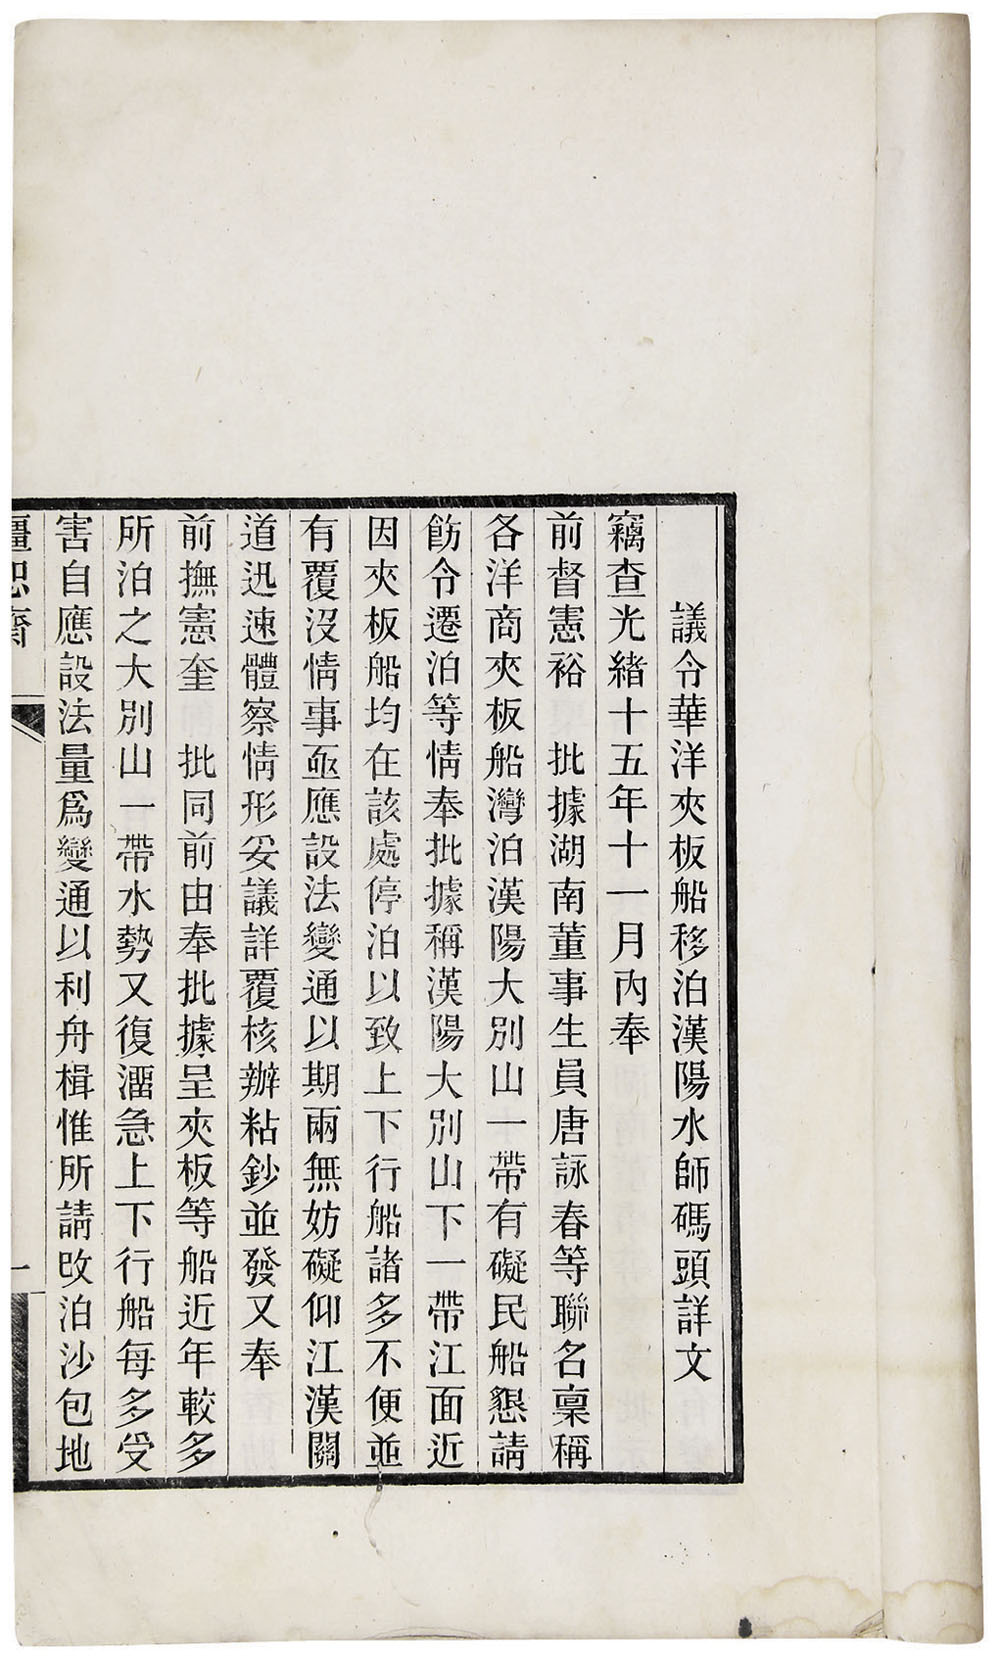 議令華洋夾板船移泊漢陽水師碼頭詳文
竊查光緒十五年十一月內奉
前督憲裕　批據湖南董事生員唐詠春等聯名稟稱
各洋商夾板船灣泊漢陽大別山一帶有礙民船懇請
飭令遷泊等情奉批據稱漢陽大別山下一帶江面近
因夾板船均在該處停泊以致上下行船諸多不便並
有覆沒情事亟應設法變通以期兩無妨礙仰江漢關
道迅速體察情形妥議詳覆核辦粘鈔並發又奉
前撫憲奎　批同前由奉批據呈夾板等船近年較多
所泊之大別山一帶水勢又復溜急上下行船每多受
害自應設法量為變通以利舟楫惟所請改泊沙包地
一